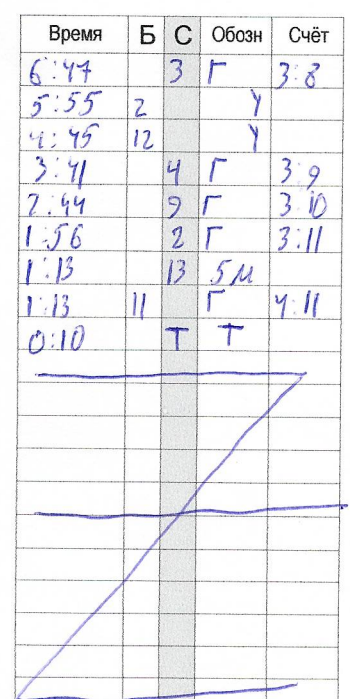 Время Б С Обозн Счёт
6:47 3 Г 3:8
5:55 2 У
4:45 12 У
3:41 4 Г 3:9
2:44 9 Г 3:10
1:56 2 Г 3:11
1:13 13 5м
1:13 11 Г 4:11
0:10 Т Т